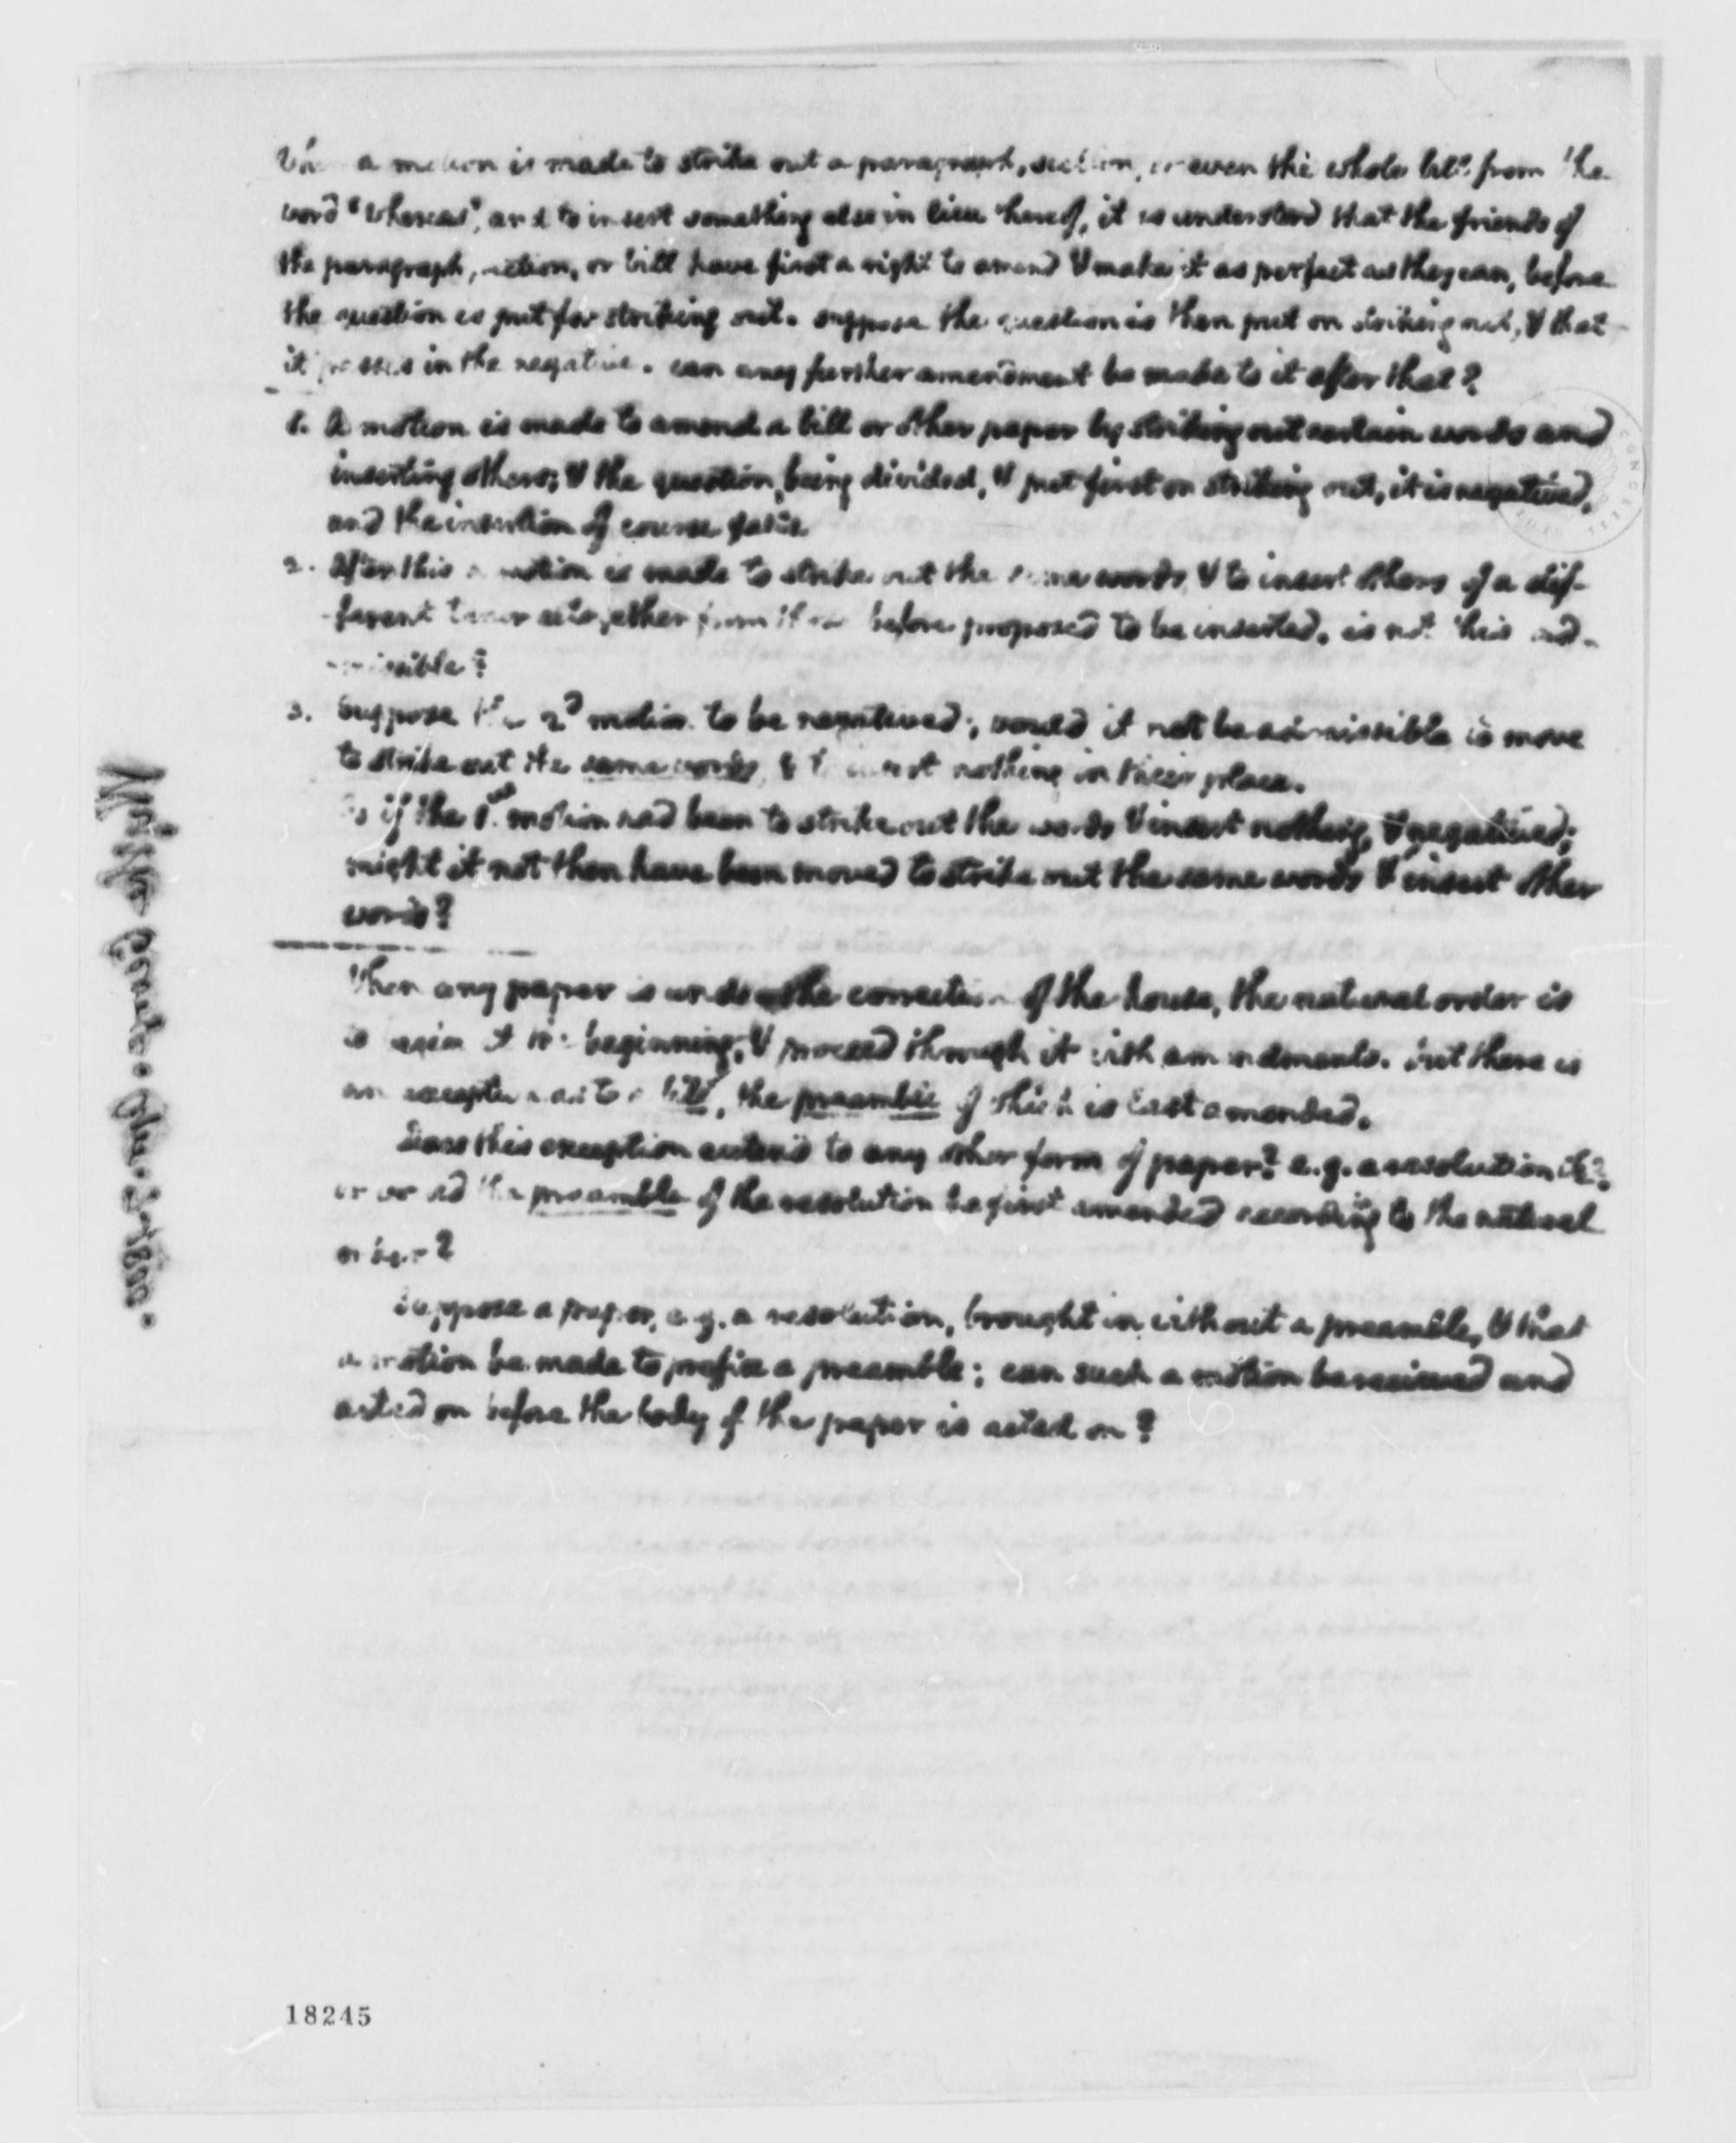 a motion is made to strike out a paragraph, section, or even the whole bill from the
word "whereas", and to insert something else in lieu thereof, it is understood that the friends of
the paragraph, section, or bill have first a right to amend & make it as perfect as they can, before
the question is put for striking out. suppose the question is then put on striking out, & that
it passes in the negative. can any further amendment be made to it after that?
1. A motion is made to amend a bill or other paper by striking out certain words and
inserting others; & the question being divided, & put first on striking out, it is negatived,
and the insertion of course falls.
2. After this a motion is made to strike out the same words, & to insert others of a dif-
-ferent tenor altogether from those before proposed to be inserted. is not this ad-
-missible?
3. Suppose the 2d motion to be negatived; would it not be admissible to move
to strike out the same words, & to insert nothing in their place.
so if the 1st motion had been to strike out the words & insert nothing, & negatived;
might it not then have been moved to strike out the same words & insert other
words?
When any paper is under the correction of the house, the natural order is
to begin at the beginning, & proceed through it with amendments. but there is
an exception as to a bill, the preamble of which is last amended.
does this exception extend to any other form of paper? e.g. a resolution &c?
or would the preamble of the resolution be first amended according to the natural
order?
Suppose a paper, e.g. a resolution, brought in without a preamble, & that
a motion be made to prefix a preamble; can such a motion be received and
acted on before the body of the paper is acted on?
18245